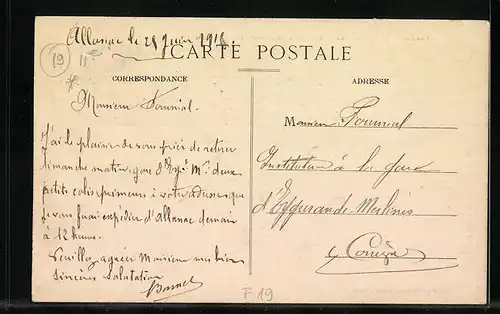 Allanac le 28 Juin 191
CARTE POSTALE
19
CORRESPONDANCE
ADRESSE
Monsieur
J'ai le plaisir de vous prier de retirer
dimanche matin, gare d'Eyg. Mes deux
petits colis à votre adresse, que
je vous ferai expédier d'Allanac demain
à 12 heures.
Veuillez agréer Monsieur mes bien
Sincères Salutations
Monsieur
Instituteur à la gare
d'Eygurande-Merlines
Corrèze
F 19